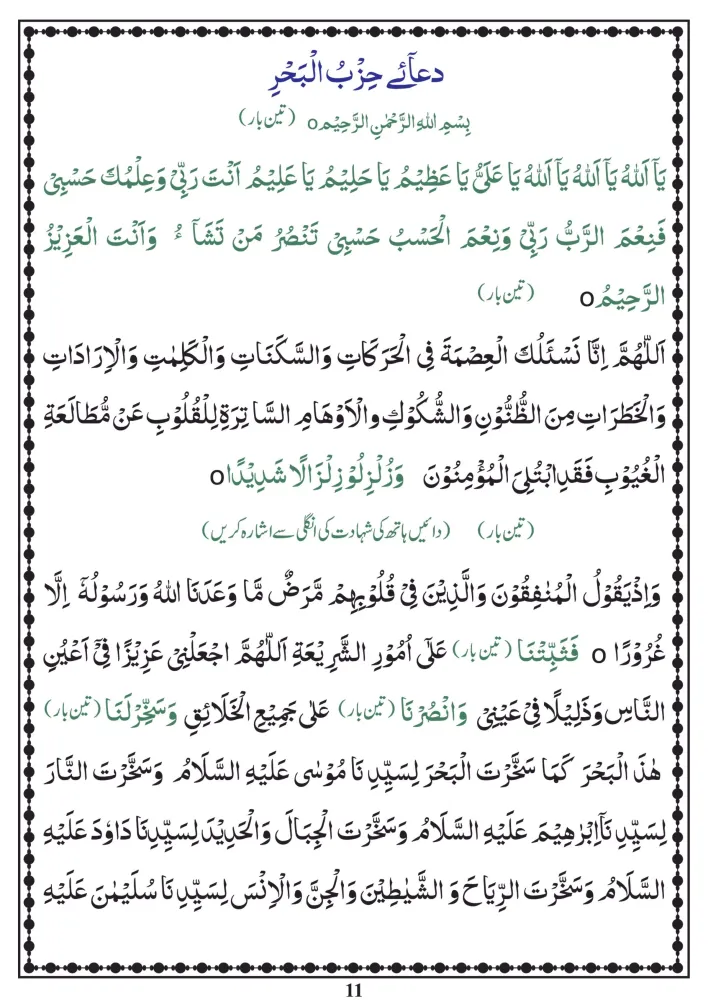 دعائے حِزْبُ الْبَحْرِ
بِسْمِ اللهِ الرَّحْمٰنِ الرَّحِيْمِ o (تین بار)
يَآ اَللهُ يَآ اَللهُ يَآ اَللهُ يَا عَلِيُّ يَا عَظِيْمُ يَا حَلِيْمُ يَا عَلِيْمُ اَنْتَ رَبِّيْ وَعِلْمُكَ حَسْبِيْ
فَنِعْمَ الرَّبُّ رَبِّيْ وَنِعْمَ الْحَسْبُ حَسْبِيْ تَنْصُرُ مَنْ تَشَآءُ وَاَنْتَ الْعَزِيْزُ
الرَّحِيْمُ o (تین بار)
اَللّٰهُمَّ اِنَّا نَسْئَلُكَ الْعِصْمَةَ فِي الْحَرَكَاتِ وَالسَّكَنَاتِ وَالْكَلِمٰتِ وَالْاِرَادَاتِ
وَالْخَطَرَاتِ مِنَ الظُّنُّوْنِ وَالشُّكُوْكِ والْاَوْهَامِ السَّاتِرَةِ لِلْقُلُوْبِ عَنْ مُّطَالَعَةِ
الْغُيُوْبِ فَقَدِ ابْتُلِيَ الْمُؤْمِنُوْنَ وَزُلْزِلُوْ زِلْزَالًا شَدِيْدًا o
(تین بار) (دائیں ہاتھ کی شہادت کی انگلی سے اشارہ کریں)
وَاِذْ يَقُوْلُ الْمُنٰفِقُوْنَ وَالَّذِيْنَ فِيْ قُلُوْبِهِمْ مَّرَضٌ مَّا وَعَدَنَا اللهُ وَرَسُوْلُهٗ اِلَّا
غُرُوْرًا o فَثَبِّتْنَا (تین بار) عَلٰى اُمُوْرِ الشَّرِيْعَةِ اَللّٰهُمَّ اجْعَلْنِيْ عَزِيْزًا فِيْٓ اَعْيُنِ
النَّاسِ وَذَلِيْلًا فِيْ عَيْنِيْ وَانْصُرْنَا (تین بار) عَلٰى جَمِيْعِ الْخَلَائِقِ وَسَخِّرْلَنَا (تین بار)
هٰذَ الْبَحْرَ كَمَا سَخَّرْتَ الْبَحْرَ لِسَيِّدِنَا مُوْسٰى عَلَيْهِ السَّلَامُ وَسَخَّرْتَ النَّارَ
لِسَيِّدِنَآ اِبْرٰهِيْمَ عَلَيْهِ السَّلَامُ وَسَخَّرْتَ الْجِبَالَ وَالْحَدِيْدَ لِسَيِّدِنَا دَاوٗدَ عَلَيْهِ
السَّلَامُ وَسَخَّرْتَ الرِّيَاحَ وَ الشَّيٰطِيْنَ وَالْجِنَّ وَالْاِنْسَ لِسَيِّدِنَا سُلَيْمٰنَ عَلَيْهِ
11